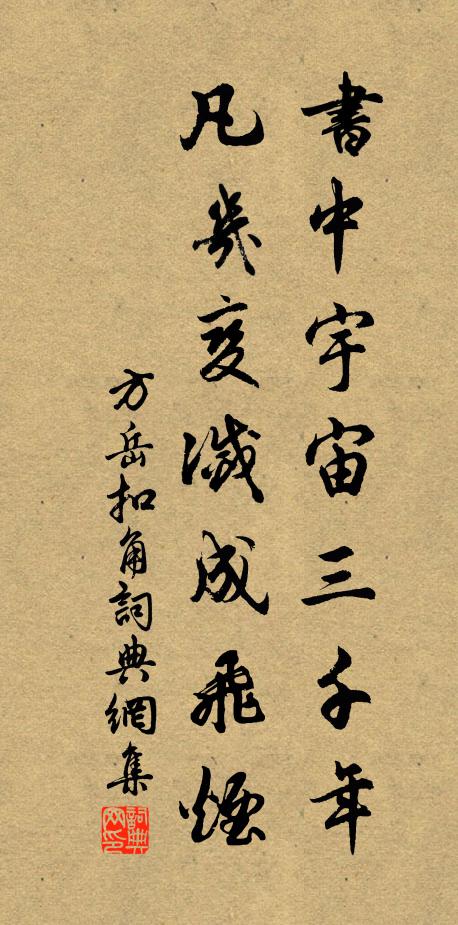 書中宇宙三千年
凡幾變滅成飛煙
方岳扣角詞典網集
詞典網印